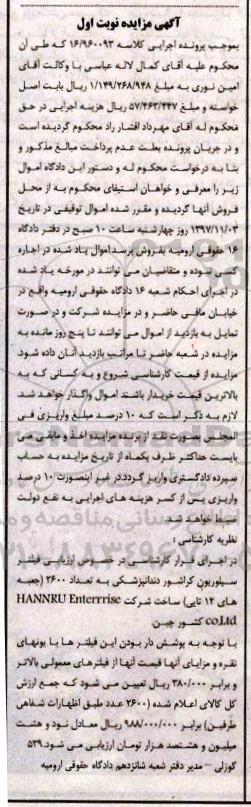 آگهی مزایده نوبت اول
بموجب پرونده اجرایی کلاسه ۱۶/۹۶۰۰۹۳ که طی آن
محکوم علیه آقای کمال لاله عباسی با وکالت آقای
امین نوری به مبلغ ۱/۱۴۹/۲۶۸/۹۴۸ ریال بابت اصل
خواسته و مبلغ ۵۷/۴۶۳/۴۴۷ ریال هزینه اجرایی در حق
محکوم له آقای مهرداد افشار راد محکوم گردیده است
و در جریان پرونده بعلت عدم پرداخت مبالغ مذکور و
بنا به درخواست محکوم له و دستور این دادگاه اموال
زیر را معرفی و خواهان استیفای محکوم به از محل
فروش آنها گردیده و مقرر شده اموال توقیفی در تاریخ
۱۳۹۷/۱۱/۰۳ روز چهارشنبه ساعت ۱۰ صبح در دفتر دادگاه
۱۶ حقوقی ارومیه بفروش برسد اموال یاد شده در اجاره
کسی نبوده و متقاضیان می توانند در مورخه یاد شده
در اجرای احکام شعبه ۱۶ دادگاه حقوقی ارومیه واقع در
خیابان مافی حاضر و در مزایده شرکت و در صورت
تمایل به بازدید از اموال می توانند تا پنج روز مانده به
مزایده در شعبه حاضر تا مراتب بازدید آنان داده شود.
مزایده از قیمت کارشناسی شروع و به کسانی که به
بالاترین قیمت خریدار باشند اموال واگذار خواهد شد.
لازم به ذکر است که ۱۰ درصد مبلغ واریزی فی
المجلس بصورت نقد از برنده مزایده اخذ و مابقی می
بایست حداکثر ظرف یکماه از تاریخ مزایده به حساب
سپرده دادگستری واریز گردد در غیر اینصورت ۱۰ درصد
واریزی پس از کسر هزینه های اجرایی به نفع دولت
ضبط خواهد شد.
نظریه کارشناسی :
در اجرای قرار کارشناسی در خصوص ارزیابی فیلتر
سیلورپون کراشور دندانپزشکی به تعداد ۲۶۰۰ (جعبه
های ۱۲ تایی) ساخت شرکت HANNRU Enterrrise
co.Ltd کشور چین.
با توجه به پوشش دار بودن این فیلتر ها با یونهای
نقره و مزایای آنها قیمت آنها از فیلترهای معمولی بالاتر
و برابر ۳۸۰/۰۰۰ ریال تعیین می شود که جمع ارزش
کل کالای اعلام شده (۲۶۰۰ عدد طبق اظهارات شفاهی
طرفین) برابر ۹۸۸/۰۰۰/۰۰۰ ریال معادل نود و هشت
میلیون و هشتصد هزار تومان ارزیابی می شود.۵۳۹
گوزلی – مدیر دفتر شعبه شانزدهم دادگاه حقوقی ارومیه